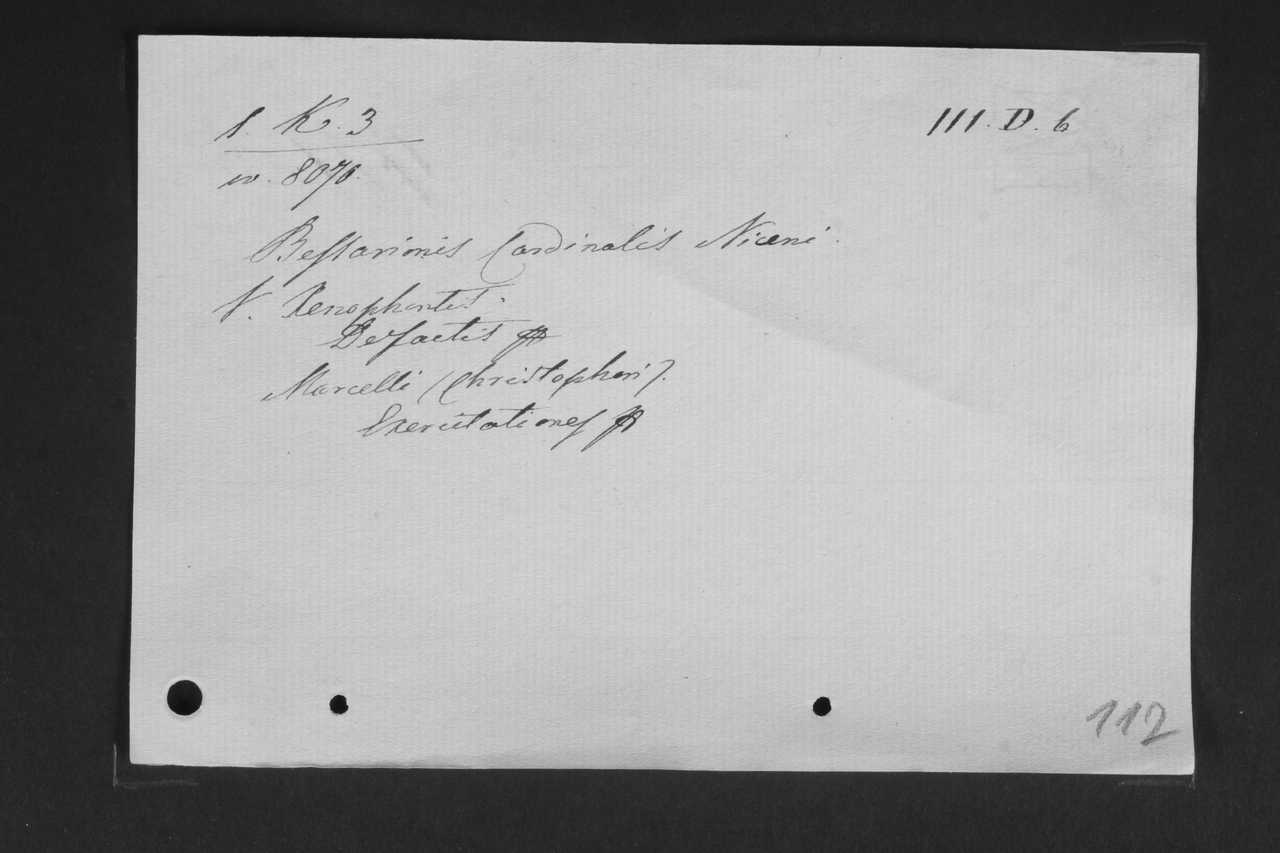 1. K. 3
III. D. 6
w. 8070.
Beſsarionis Cardinalis Niceni.
V. Xenophontis.
De factis
Marcelli (Christophori).
Exercitationes
112